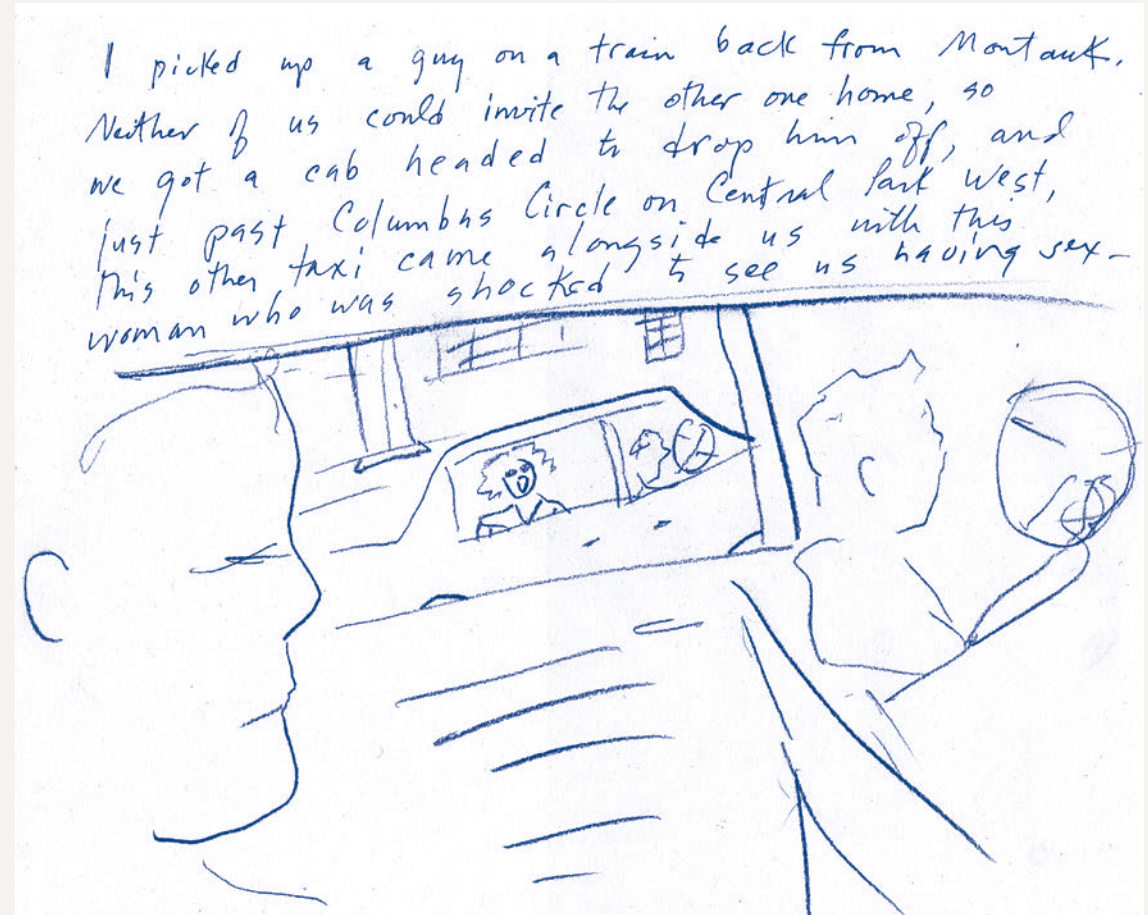 I picked up a guy on a train back from Montauk.
Neither of us could invite the other one home, so
we got a cab headed to drop him off, and
just past Columbus Circle on Central Park West,
this other taxi came alongside us with this
woman who was shocked to see us having sex-